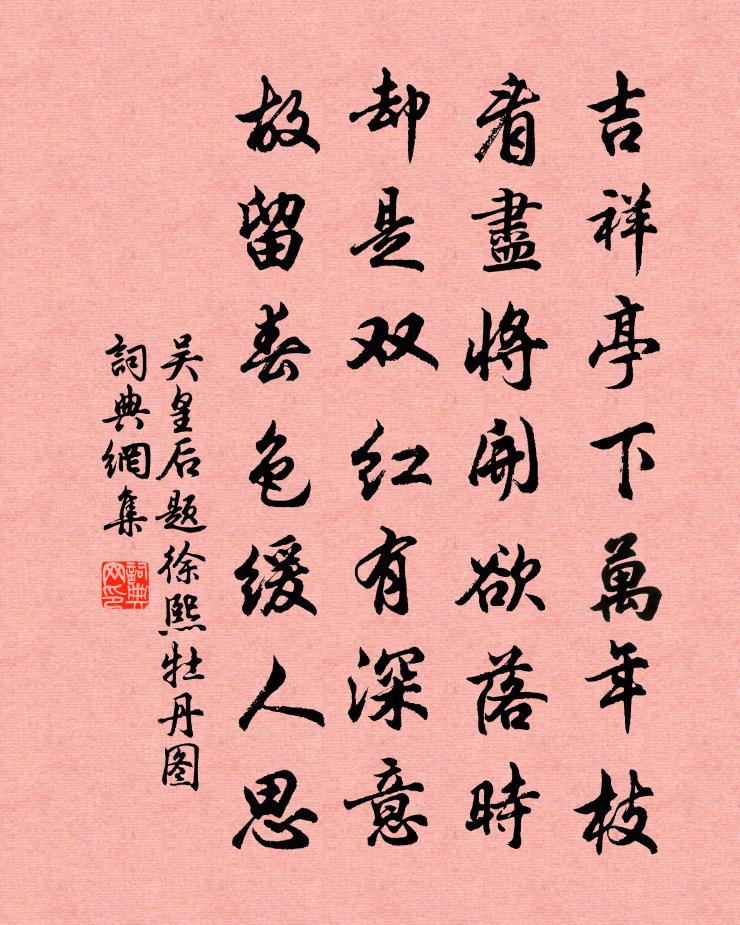 吉祥亭下萬年枝
看盡將開欲落時
却是双红有深意
故留春色缓人思
吴皇后题徐熙牡丹图
詞典網集
詞典网印